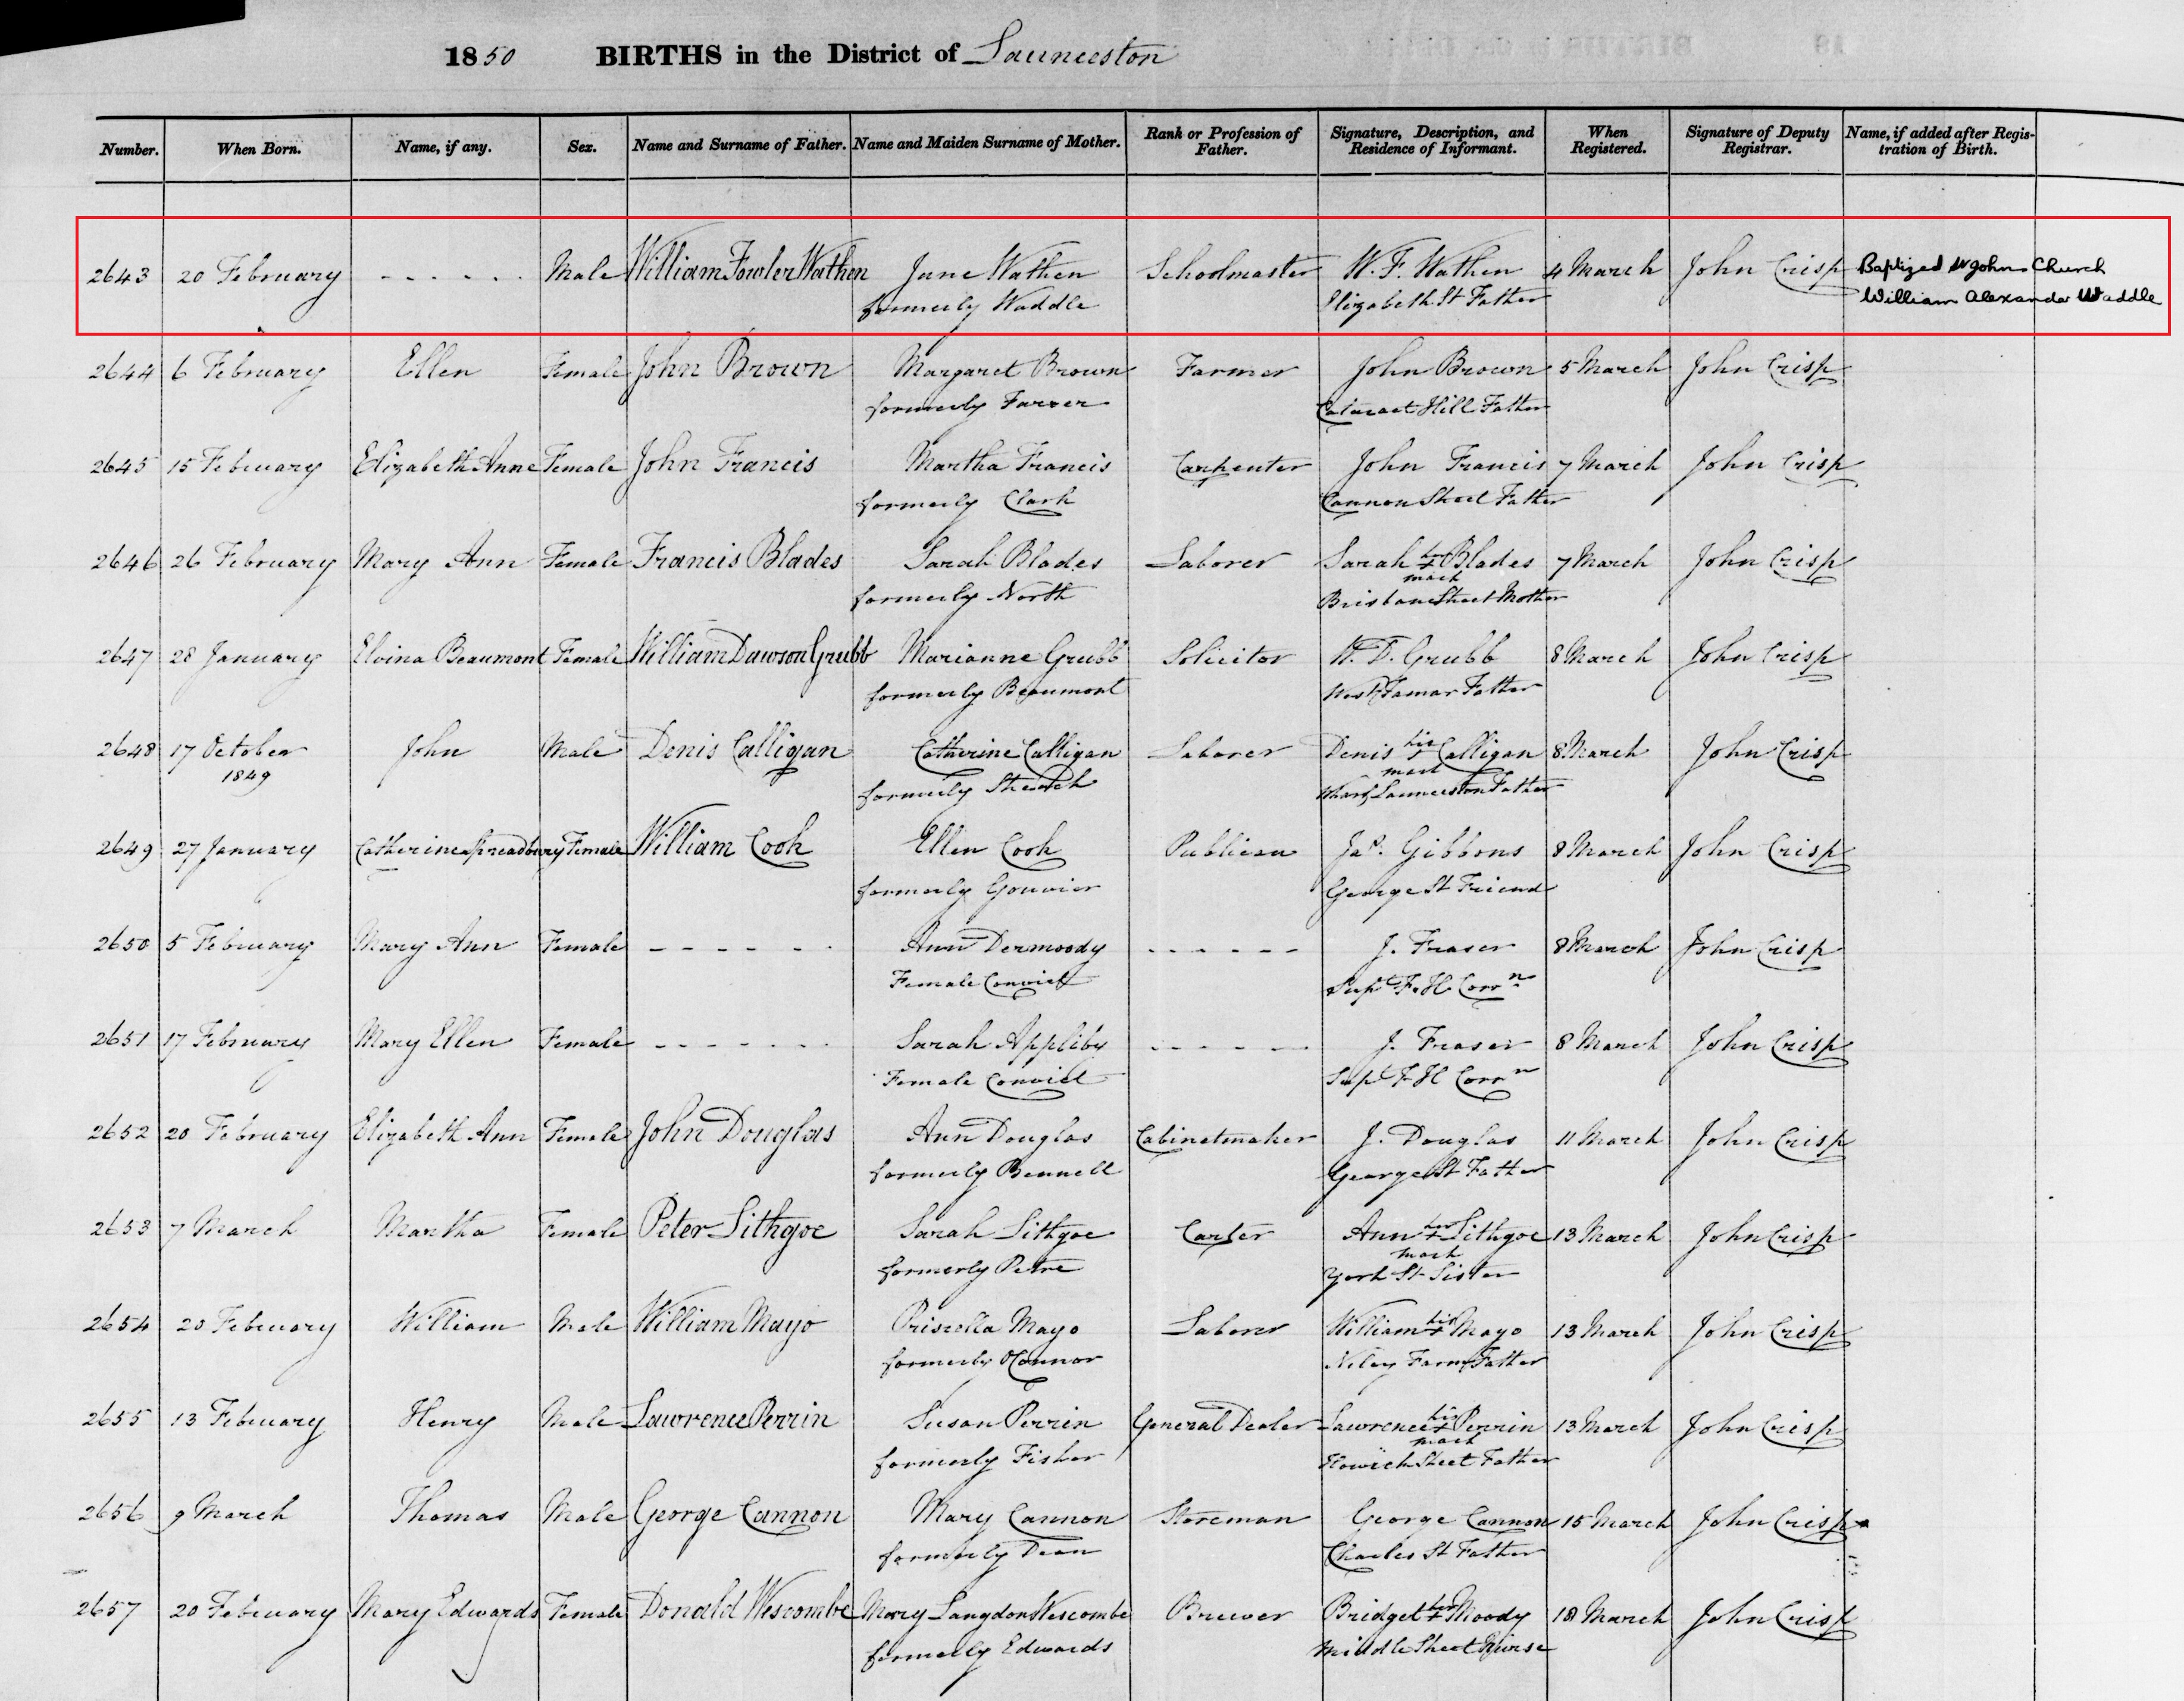 1850 BIRTHS in the District of Launceston
Number. When Born. Name, if any. Sex. Name and Surname of Father. Name and Maiden Surname of Mother. Rank or Profession of Father. Signature, Description, and Residence of Informant. When Registered. Signature of Deputy Registrar. Name, if added after Registration of Birth.
2643 20 February - - - - - - Male William Fowler Wathen Jane Wathen Schoolmaster W. F. Wathen 4 March John Crisp Baptized St Johns Church
formerly Waddle Elizabeth St Father William Alexander Waddle
2644 6 February Ellen Female John Brown Margaret Brown Farmer John Brown 5 March John Crisp
formerly Farrer Cataract Hill Father
2645 15 February Elizabeth Anne Female John Francis Martha Francis Carpenter John Francis 7 March John Crisp
formerly Clark Cannon Street Father
2646 26 February Mary Ann Female Francis Blades Sarah Blades Laborer Sarah her + Blades 7 March John Crisp
mark
formerly North Brisbane Street Mother
2647 28 January Elvina Beaumont Female William Dawson Grubb Marianne Grubb Solicitor W. D. Grubb 8 March John Crisp
formerly Beaumont West Tamar Father
2648 17 October John Male Denis Calligan Catherine Calligan Laborer Denis his + Calligan 8 March John Crisp
1849 mark
formerly Wharf Launceston Father
2649 27 January Catherine Spreadbury Female William Cook Ellen Cook Publican Jas. Gibbons 8 March John Crisp
formerly Gouvier George St Friend
2650 5 February Mary Ann Female - - - - - - Ann Dermoody - - - - - - J. Fraser 8 March John Crisp
Female Convict Supt F. H. Corrn
2651 17 February Mary Ellen Female - - - - - - Sarah Appliby - - - - - J. Fraser 8 March John Crisp
Female Convict Supt F. H Corrn
2652 20 February Elizabeth Ann Female John Douglas Ann Douglas Cabinetmaker J. Douglas 11 March John Crisp
formerly Bennell George St Father
2653 7 March Martha Female Peter Lithgoe Sarah Lithgoe Carter Ann her + Lithgoe 13 March John Crisp
mark
formerly Petre York St Sister
2654 20 February William Male William Mayo Priscella Mayo Laborer William his + Mayo 13 March John Crisp
formerly OConnor Farm Father
2655 13 February Henry Male Lawrence Perrin Susan Perrin General Dealer Lawrence his + Perrin 13 March John Crisp
mark
formerly Fisher Street Father
2656 9 March Thomas Male George Cannon Mary Cannon Storeman George Cannon 15 March John Crisp
formerly Dean Charles St Father
2657 20 February Mary Edwards Female Donald Wescombe Mary Langdon Wescombe Brewer Bridget her + Moody 18 March John Crisp
formerly Edwards Middle Street Nurse